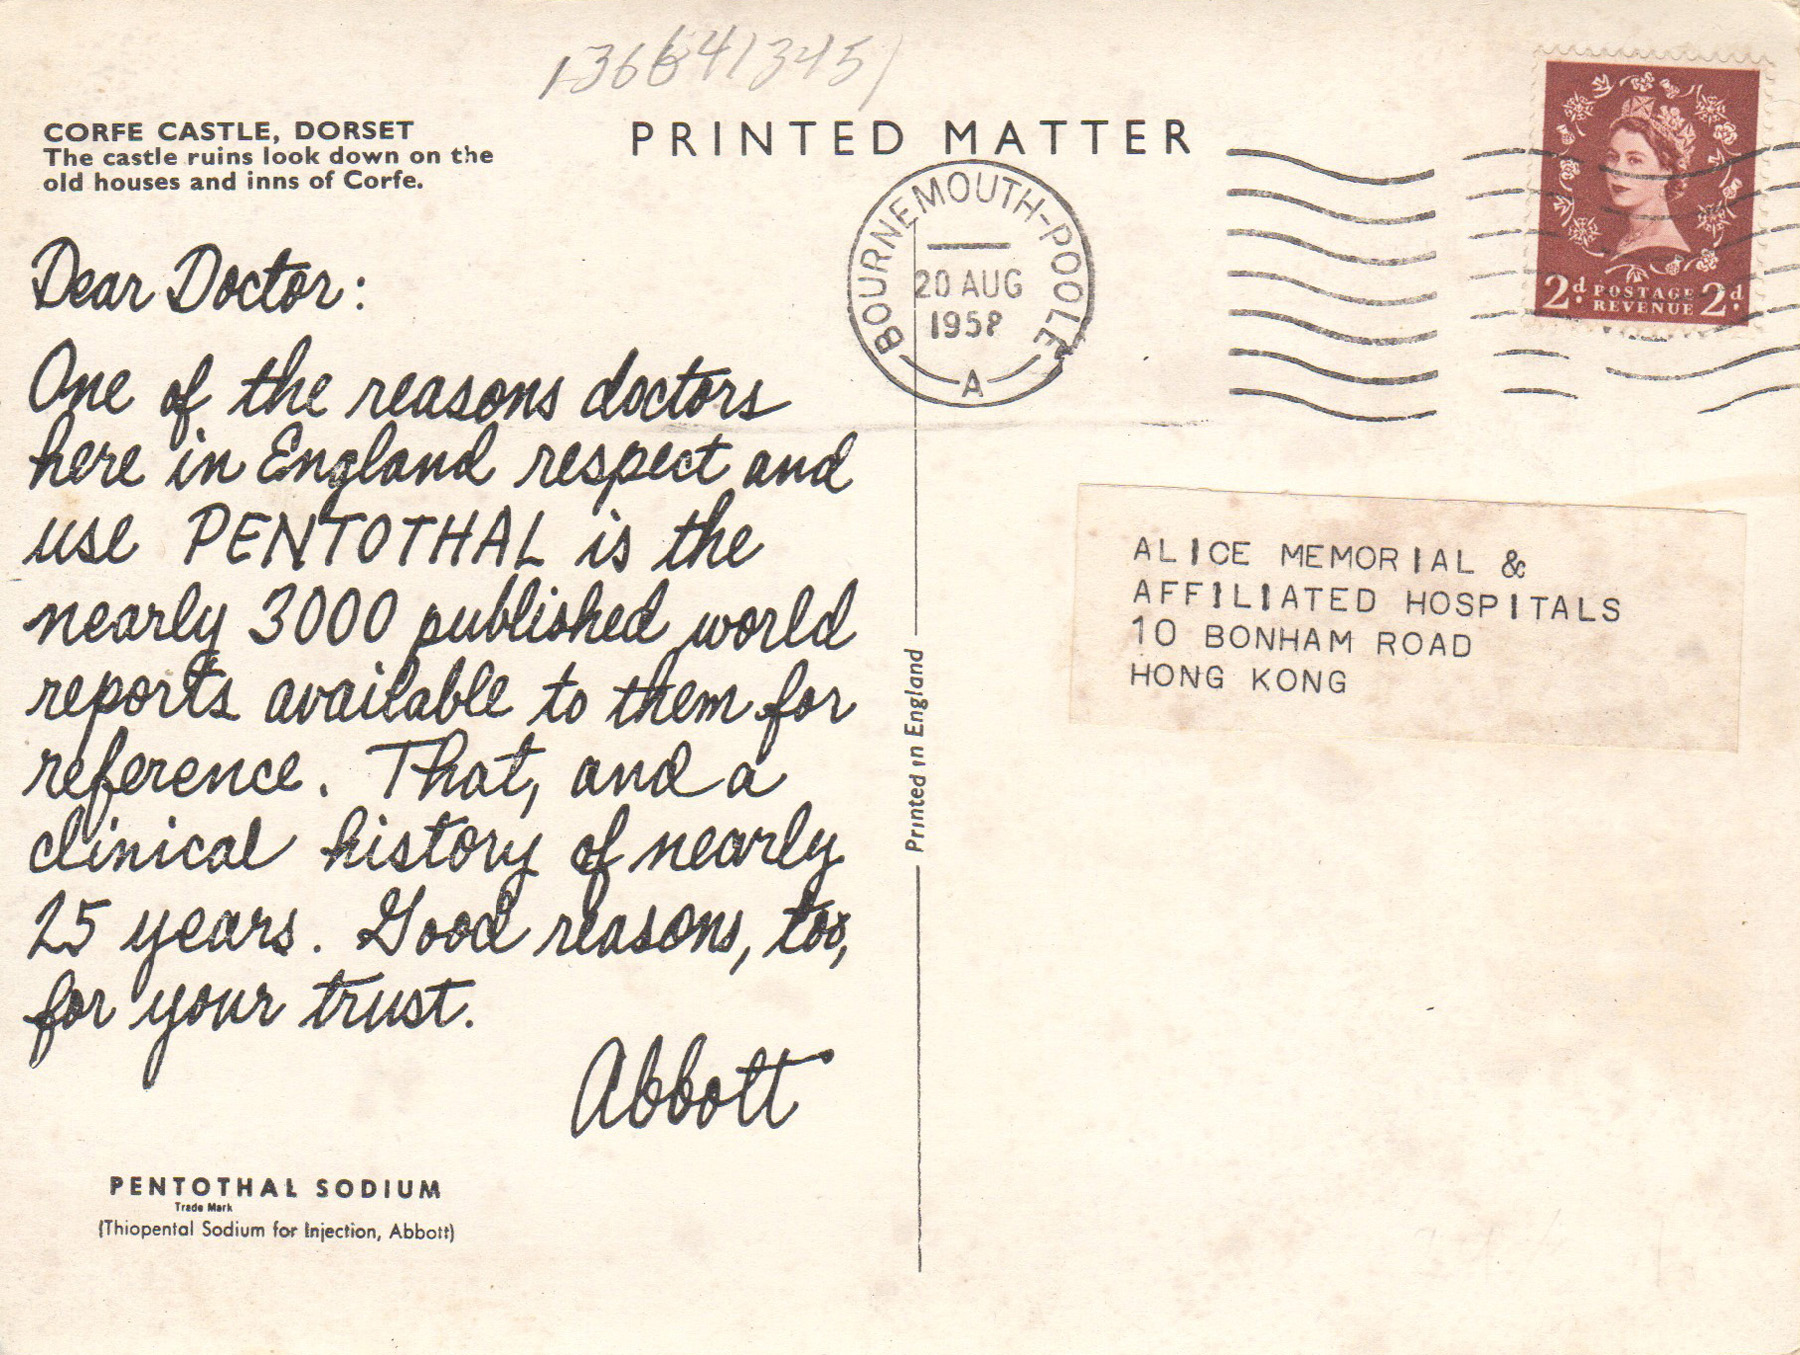 1366413451
CORFE CASTLE, DORSET
The castle ruins look down on the
old houses and inns of Corfe.
PRINTED MATTER
BOURNEMOUTH-POOLE
20 AUG
1958
A
2d. POSTAGE 2d.
REVENUE
Dear Doctor:
One of the reasons doctors
here in England respect and
use PENTOTHAL is the
nearly 3000 published world
reports available to them for
reference. That, and a
clinical history of nearly
25 years. Good reasons, too,
for your trust.
Abbott
PENTOTHAL SODIUM
Trade Mark
(Thiopental Sodium for Injection, Abbott)
Printed in England
ALICE MEMORIAL &
AFFILIATED HOSPITALS
10 BONHAM ROAD
HONG KONG